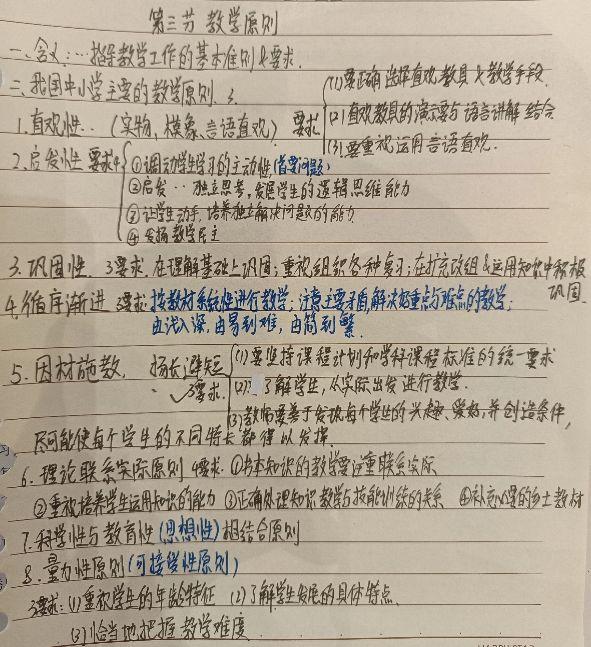 第三节 教学原则
一、含义:…指导教学工作的基本准则及要求.
二、我国中小学主要的教学原则. 3.
1.直观性..(实物、模象、言语直观) 要求
(1)要正确选择直观教具及教学手段.
(2)直观教具的演示要与语言讲解结合
(3)要重视运用言语直观.
2.启发性 要求4
①调动学生学习的主动性(首要问题)
②启发…独立思考,发展学生的逻辑思维能力
③让学生动手,培养独立解决问题的能力
④发扬教学民主
3.巩固性. 3要求.在理解基础上巩固;重视组织各种复习;在扩充改组&运用知识中积极
巩固.
4.循序渐进 3要求:按教材系统性进行教学;注意主要矛盾,解决好重点与难点的教学;
由浅入深,由易到难,由简到繁.
5.因材施教. 扬长避短
3要求.
(1)要坚持课程计划和学科课程标准的统一要求
(2)了解学生,从实际出发进行教学.
(3)教师要善于发现每个学生的兴趣、爱好,并创造条件,
尽可能使每个学生的不同特长都得以发挥.
6.理论联系实际原则 4要求.①书本知识的教学要注重联系实际
②重视培养学生运用知识的能力 ③正确处理知识教学与技能训练的关系 ④补充必要的乡土教材
7.科学性与教育性(思想性)相结合原则
8.量力性原则(可接受性原则)
3要求:(1)重视学生的年龄特征 (2)了解学生发展的具体特点.
(3)恰当地把握教学难度.